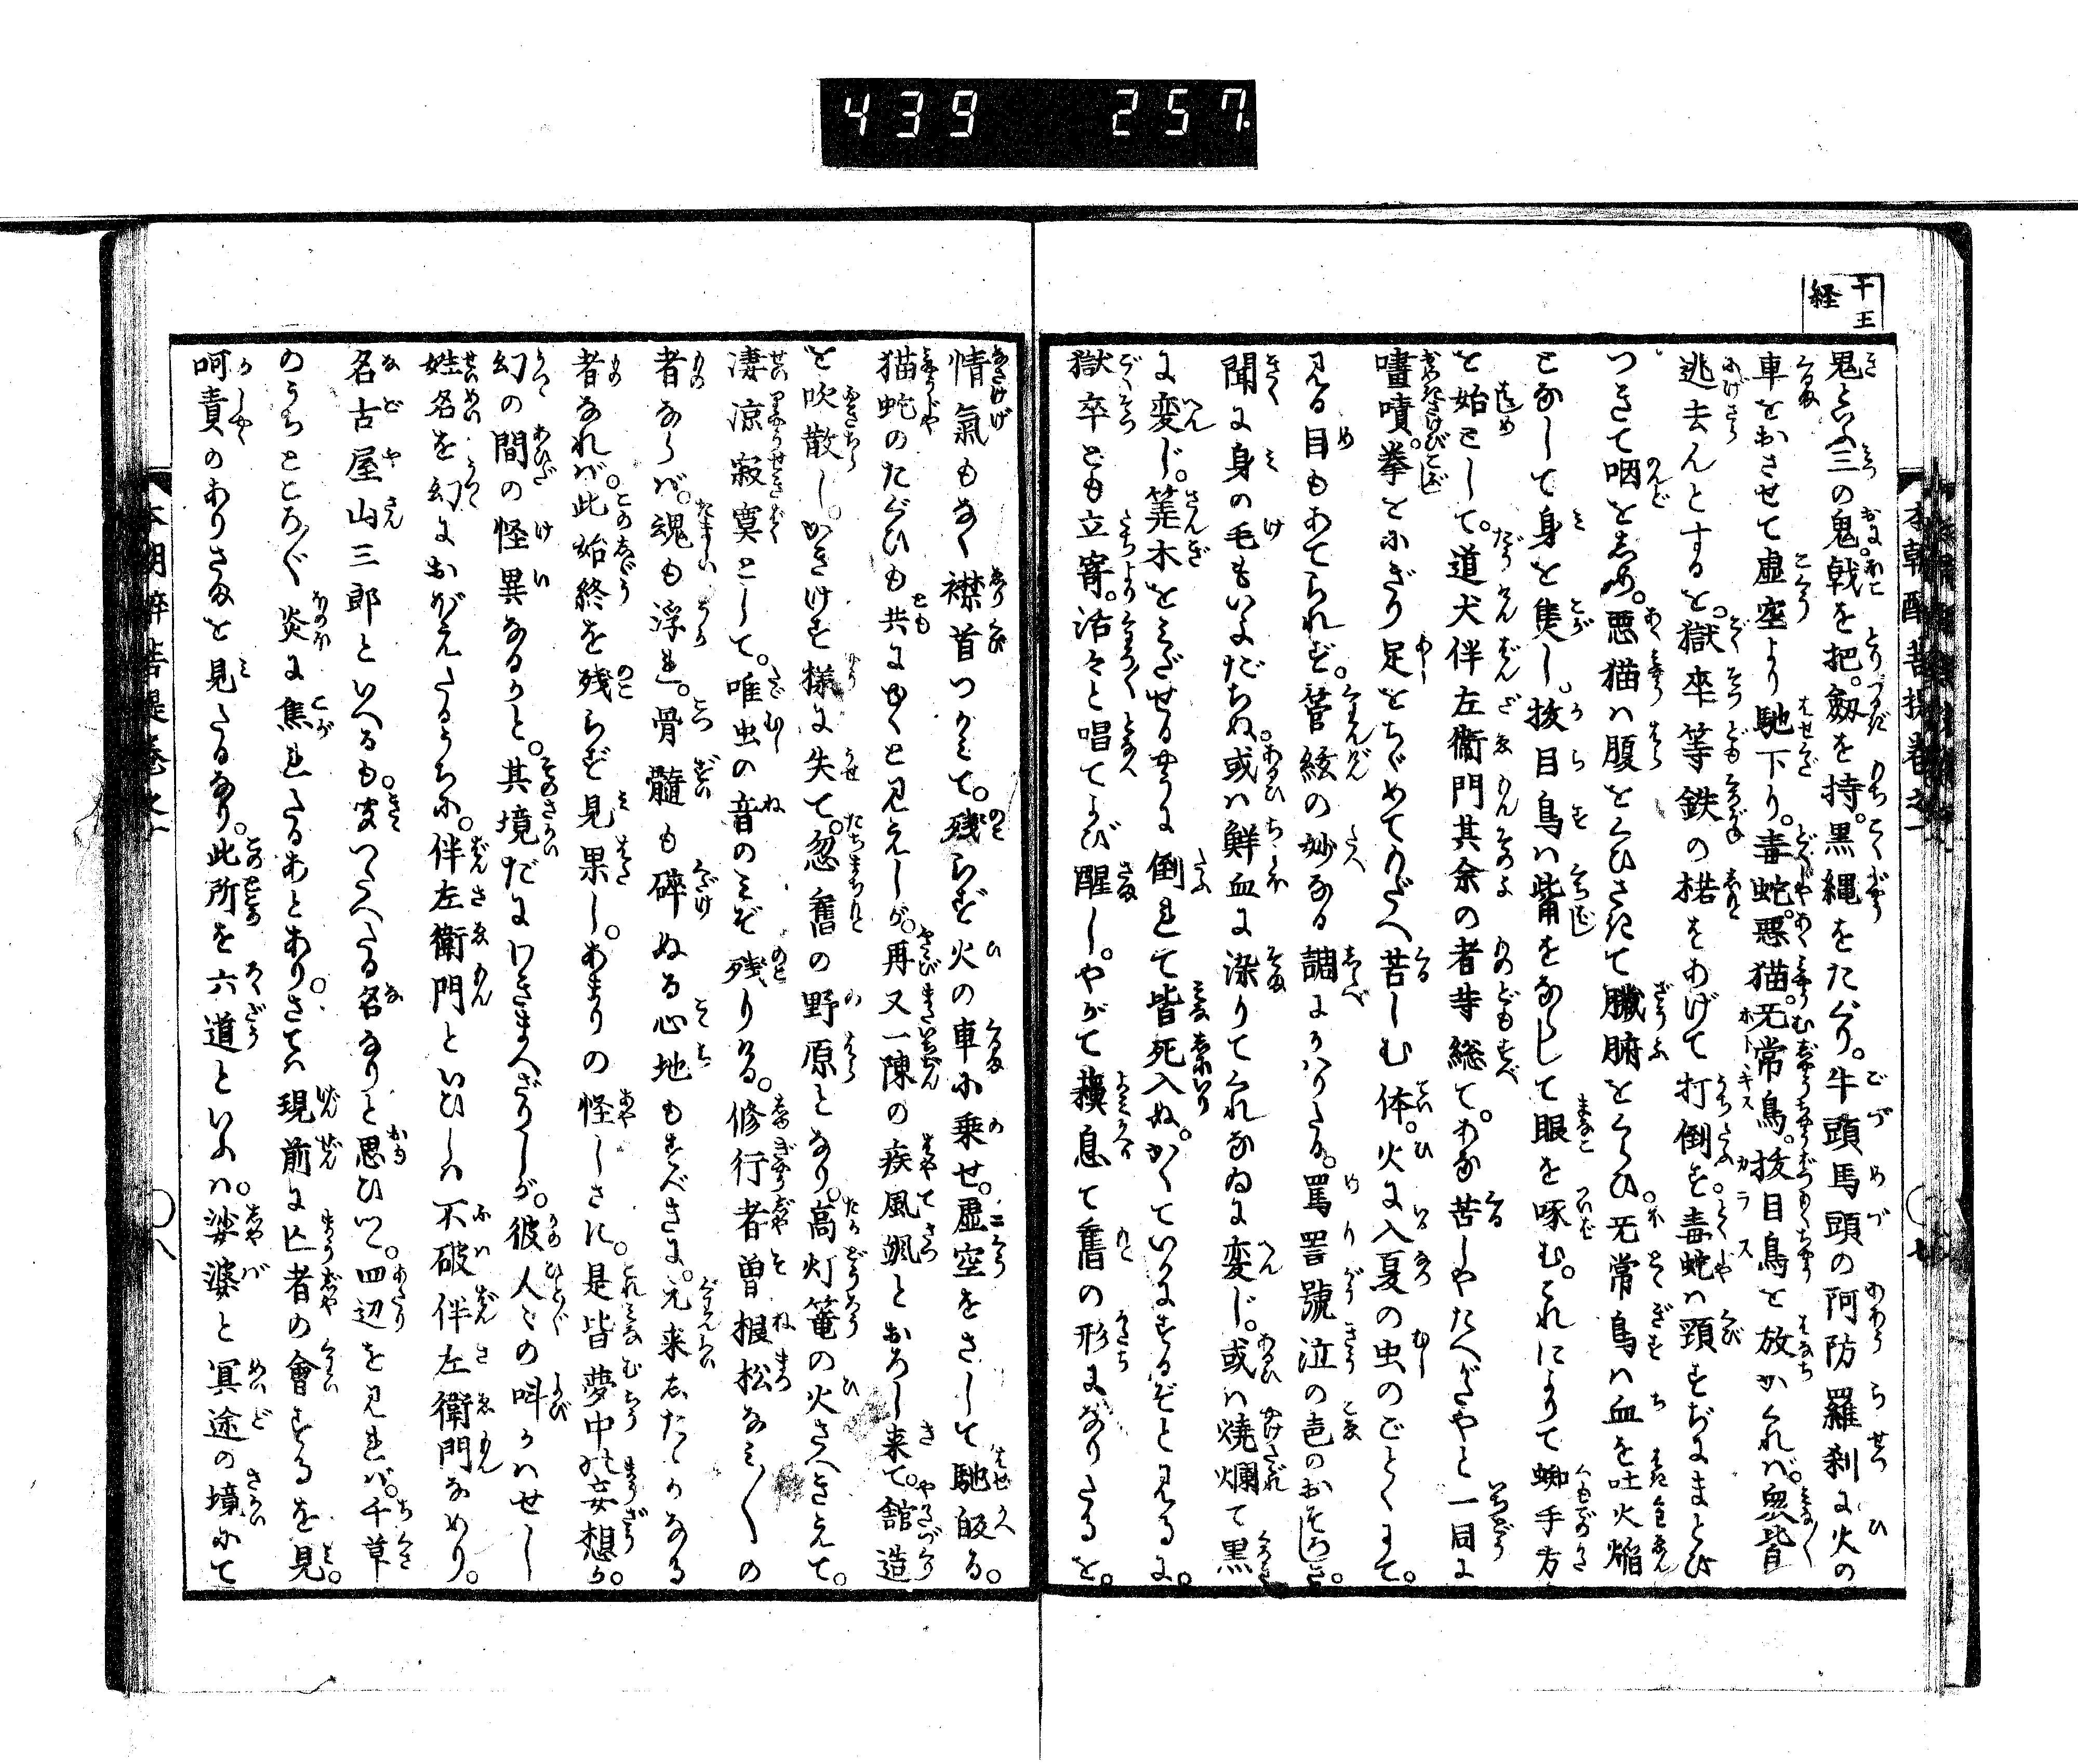 439 257.
十王
経
本朝酔菩提巻之一
鬼といふ三の鬼。戟を把。劔を持。黒縄をたぐり。牛頭馬頭の阿防羅刹に火の
車をおさせて虚空より馳下り。毒蛇。悪猫。无常鳥。抜目鳥を放かくれば。衆皆
逃去んとするを。獄卒等鉄の楉をあげて打倒す。毒蛇は頸すぢにまとひ
つきて咽をしめ。悪猫は腹をくひさきて臓腑をくらひ。无常鳥は血を吐火焔
となして身を焦し。抜目鳥は觜をならして眼を啄む。これによりて蜘手方
を始として。道犬伴左衛門其余の者等総て。あな苦しやたへがたやと一同に
嚍噴。拳をにぎり足をちゞめてもだへ苦しむ体。火に入夏の虫のごとくにて。
見る目もあてられず。管絃の妙なる調にかはりたる。罵詈號泣の声のおそろしさ。
聞に身の毛もいよだちぬ。或は鮮血に染りてくれなゐに変じ。或は焼爛て黒
に変じ。筭木をみだせるやうに倒れて皆死入ぬ。かくていかにするぞと見るに。
獄卒ども立寄。活々と唱てよび醒し。やがて息て旧の形になりたるを。
情氣もなく襟首つかみて。残らず火の車に乗せ。虚空をさして馳皈る。
猫蛇のたぐひも共にゆくと見えしが。再又一陳の疾風颯とおろし来て。舘造
を吹散し。かきけす様に失て。忽旧の野原となり。高灯篭の火さへきえて。
凄涼寂寞として。唯虫の音のみぞ残りける。修行者曽根松なみ〳〵の
者ならば。魂も浮れ。骨髄も砕ぬる心地もすべきに。元来したゝかなる
者なれば。此始終を残らず見果し。あまりの怪しさに。是皆夢中の妄想か。
幻の間の怪異なるかと。其境だにわきまへざりしが。彼人々の呌かはせし
姓名を幻におぼえたるうちに。伴左衛門といひしは不破伴左衛門なめり。
名古屋山三郎といへるも。聞つたへたる名なりと思ひつゝ。四辺を見れば。千草
のうちところ〴〵炎に焦れたるあとあり。さては現前に亡者の會するを見。
呵責のありさまを見たるなり。此所を六道といふは。娑婆と冥途の境にて
本朝酔菩提巻之一